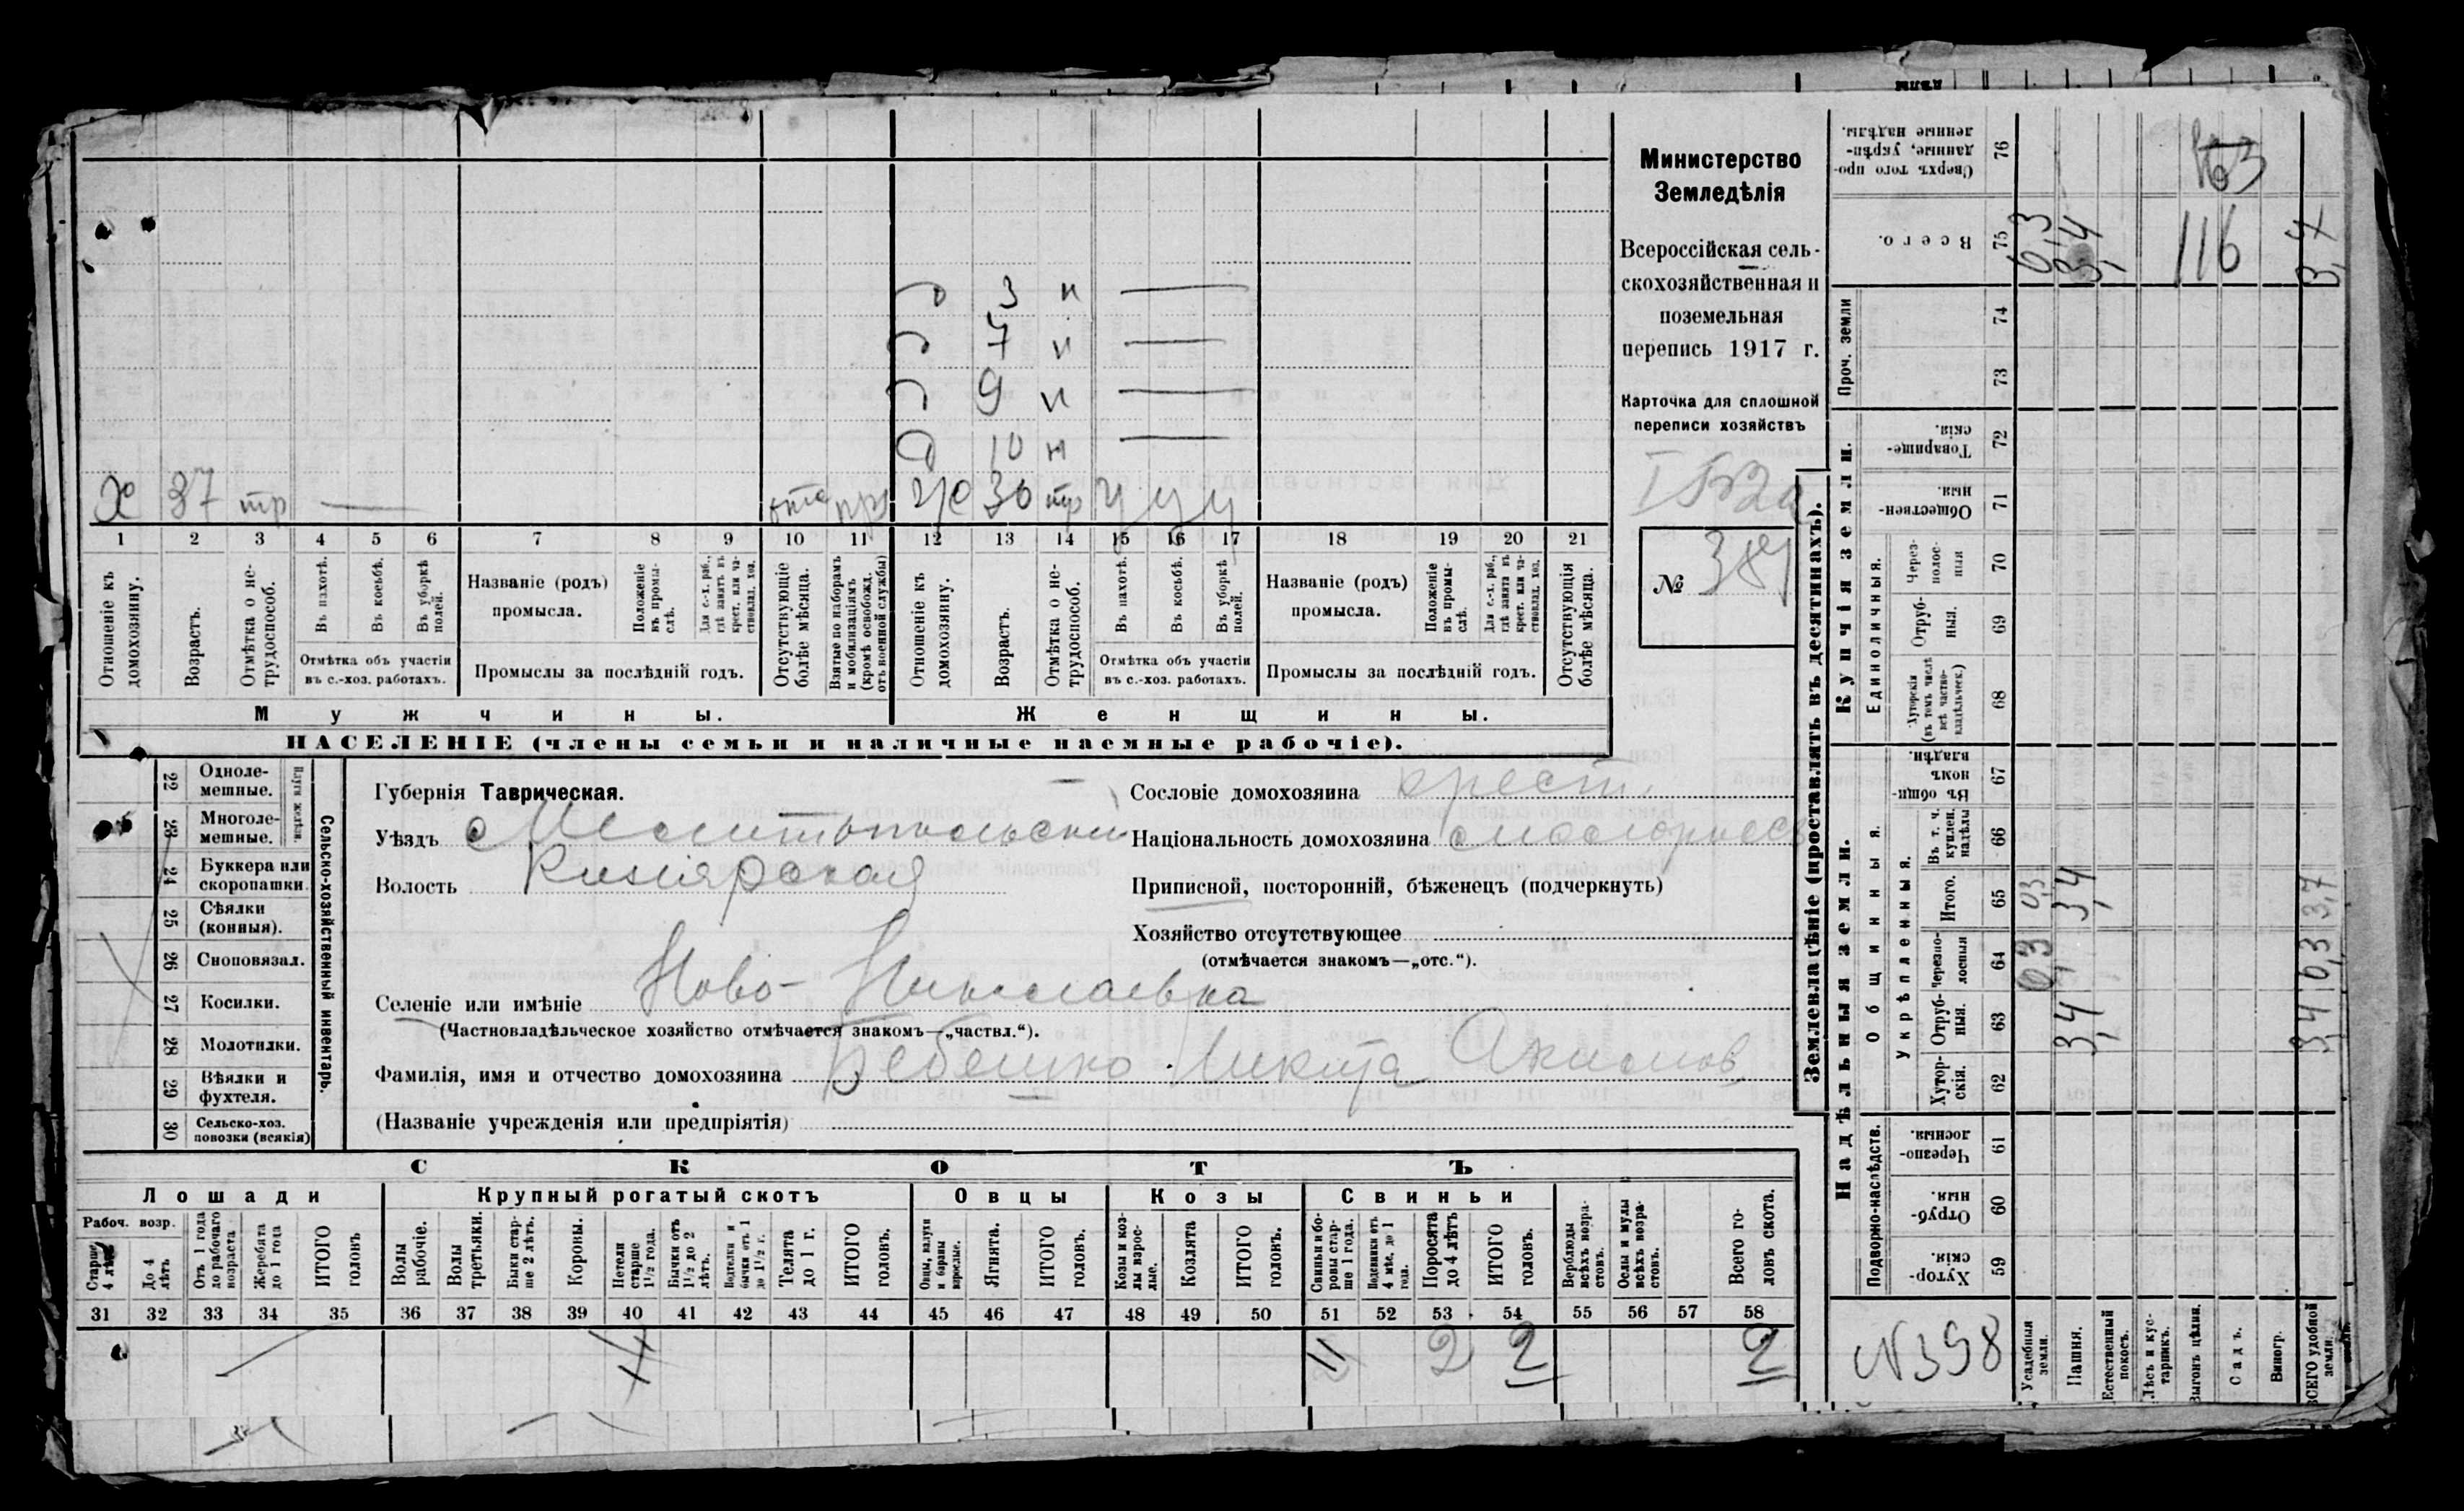 д 3 н —
д 7 н —
д 9 н —
д 10 н —
х 37 тр — отс пр ж 30 тр у у у
1 2 3 4 5 6 7 8 9 10 11 12 13 14 15 16 17 18 19 20 21
Отношеніе къ домохозяину.
Возрастъ.
Отмѣтка о не-
трудоспособ.
Въ пахотѣ.
Въ косьбѣ.
Въ уборкѣ полей.
Отмѣтка объ участіи
въ с.-хоз. работахъ.
Названіе (родъ)
промысла.
Положеніе
въ промы-
слѣ.
Для с.-х. раб.,
гдѣ занятъ въ
крест. или ча-
стновлад. хоз.
Промыслы за послѣдній годъ.
Отсутствующіе
болѣе мѣсяца.
Взятые по наборамъ
и мобилизаціямъ
(кромѣ освобожд.
отъ военной службы)
Отношеніе къ
домохозяину.
Возрастъ.
Отмѣтка о не-
трудоспособ.
Въ пахотѣ.
Въ косьбѣ.
Въ уборкѣ
полей.
Отмѣтка объ участіи
въ с.-хоз. работахъ.
Названіе (родъ)
промысла.
Положеніе
въ промы-
слѣ.
Для с.-х. раб.,
гдѣ занята въ
крест. или ча-
стновлад. хоз.
Промыслы за послѣдній годъ.
Отсутствующія
болѣе мѣсяца.
Мужчины. Женщины.
НАСЕЛЕНІЕ (члены семьи и наличные наемные рабочіе).
Министерство
Земледѣлія
Всероссійская сель-
скохозяйственная и
поземельная
перепись 1917 г.
Карточка для сплошной
переписи хозяйствъ
№ 389
22 Одноле-
мешные.
23 Многоле-
мешные.
24 Буккера или
скоропашки.
25 Сѣялки
(конныя).
26 Сноповязал.
27 Косилки.
28 Молотилки.
29 Вѣялки и
фухтеля.
30 Сельско-хоз.
повозки (всякія)
Сельско-хозяйственный инвентарь.
Губернія Таврическая.
Уѣздъ Мелитопольский
Волость Кизиярская
Селеніе или имѣніе Ново-Николаевка
(Частновладѣльческое хозяйство отмѣчается знакомъ—„частвл.“).
Фамилія, имя и отчество домохозяина Бебешко Никита Акимов
(Названіе учрежденія или предпріятія)
Сословіе домохозяина крест.
Національность домохозяина малоросс
Приписной, посторонній, бѣженецъ (подчеркнуть)
Хозяйство отсутствующее
(отмѣчается знакомъ—„отс.“).
СКОТЪ
Лошади Крупный рогатый скотъ Овцы Козы Свиньи
Рабоч. возр.
Старше
4 лѣтъ
До 4
лѣтъ
Отъ 1 года
до рабочаго
возраста
Жеребята
до 1 года
ИТОГО
головъ
Волы
рабочіе.
Волы
третьяки.
Быки стар-
ше 2 лѣтъ.
Коровы.
Нетели
старше
1½ года.
Бычки отъ
1½ до 2
лѣтъ.
Подтелки и
бычки отъ 1
до 1½ г.
Телята
до 1 г.
ИТОГО
головъ.
Овцы, валухи
и бараны
взрослые.
Ягнята.
ИТОГО
головъ.
Козы и коз-
лы взрос-
лые.
Козлята
ИТОГО
головъ.
Свиньи и бо-
ровы стар-
ше 1 года.
Подсвинки отъ
4 мѣс. до 1
года.
Поросята
до 4 лѣтъ
ИТОГО
головъ.
Верблюды
всѣхъ возра-
стовъ.
Ослы и мулы
всѣхъ возра-
стовъ.
Всего го-
ловъ скота.
31 32 33 34 35 36 37 38 39 40 41 42 43 44 45 46 47 48 49 50 51 52 53 54 55 56 57 58
2 2 2
Землевладѣніе (проставлять въ десятинахъ).
Надѣльныя земли. Купчія земли. Проч. земли
Подворно-наслѣдств. Общинныя. Единоличныя.
Укрѣпленныя.
Сверхъ того про-
данные, укрѣп-
ленные надѣлы. 76
Всего. 75 0,3 3,4 116 3,7
74
73
Товарище-
скія. 72
Обществен-
ныя. 71
Через-
полос-
ныя 70
Отруб-
ныя. 69
Хуторскія
(въ томъ числѣ
всѣ частно-
владѣльческ.) 68
Въ общи-
номъ
владѣн. 67
Въ т. ч.
куплен.
надѣлы 66
Итого. 65 0,3 3,4 3,7
Черезпо-
лосныя 64 0,3 0,3
Отруб-
ныя. 63 3,4 3,4
Хутор-
скія. 62
Черезпо-
лосныя. 61
Отруб-
ныя. 60
Хутор-
скія. 59
N398
Усадебныя
земли.
Пашня.
Естественный
покосъ.
Лѣсъ и кус-
тарникъ.
Выгонъ цѣлин.
Садъ.
Виногр.
ВСЕГО удобной
земли.